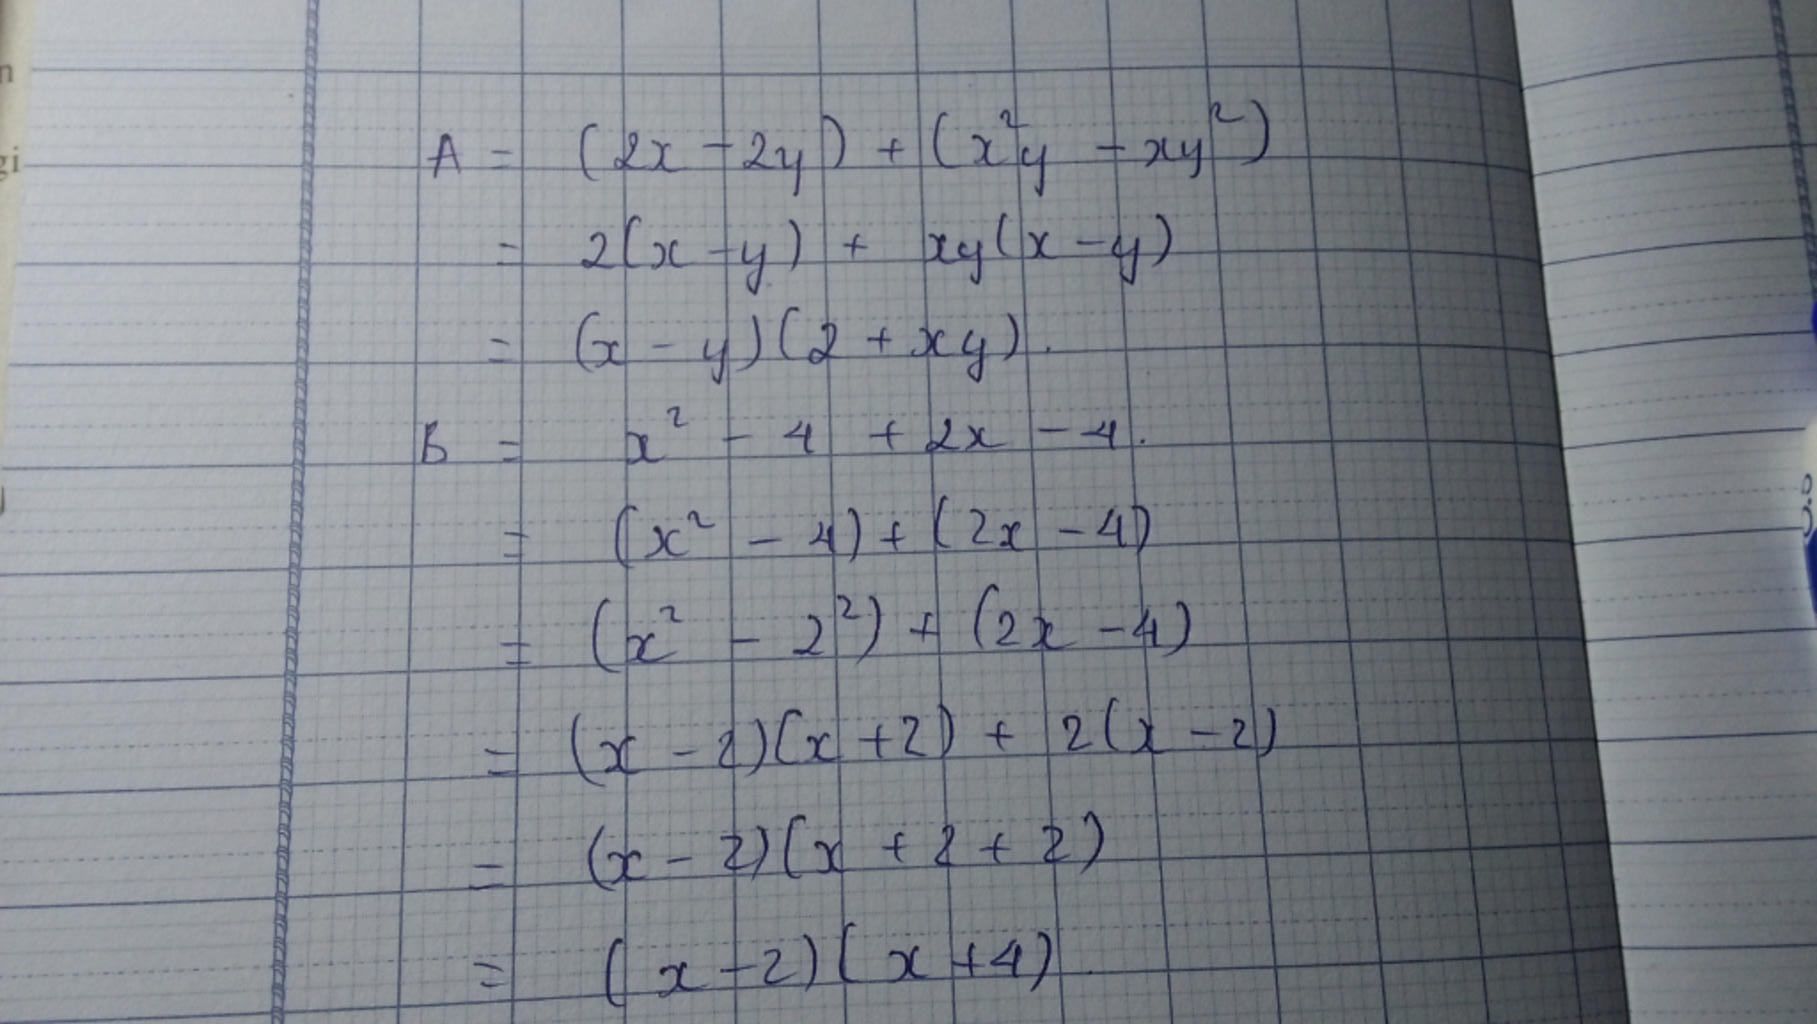 A = (2x - 2y) + (x²y - xy²)
= 2(x - y) + xy(x - y)
= (x - y)(2 + xy).
B = x² - 4 + 2x - 4.
= (x² - 4) + (2x - 4)
= (x² - 2²) + (2x - 4)
= (x - 2)(x + 2) + 2(x - 2)
= (x - 2)(x + 2 + 2)
= (x - 2)(x + 4)